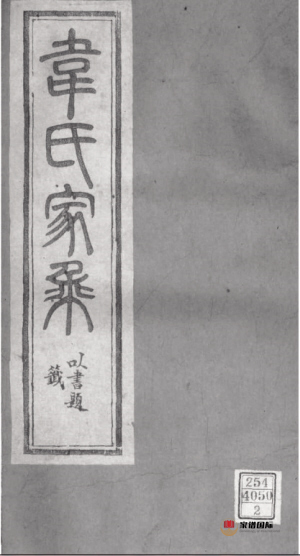 韋氏家乘
以書題
籤
254
4050
2
家谱国际